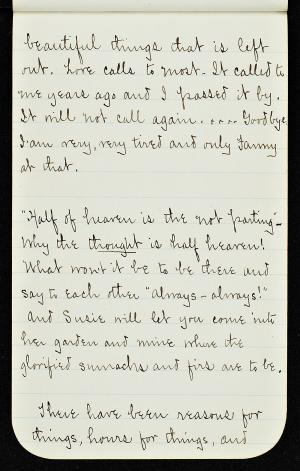 beautiful things that is left
out. Love calls to most - It called to
me years ago and I passed it by.
It will not call again. .... Goodbye,
I am very, very tired and only Fanny
at that.
"Half of heaven is the not parting" -
Why the thought is half heaven!
What won't it be to be there and
say to each other "Always - always!"
And Susie will let you come into
her garden and mine where the
glorified sumachs and firs are to be.
There have been reasons for
things, hours for things, and